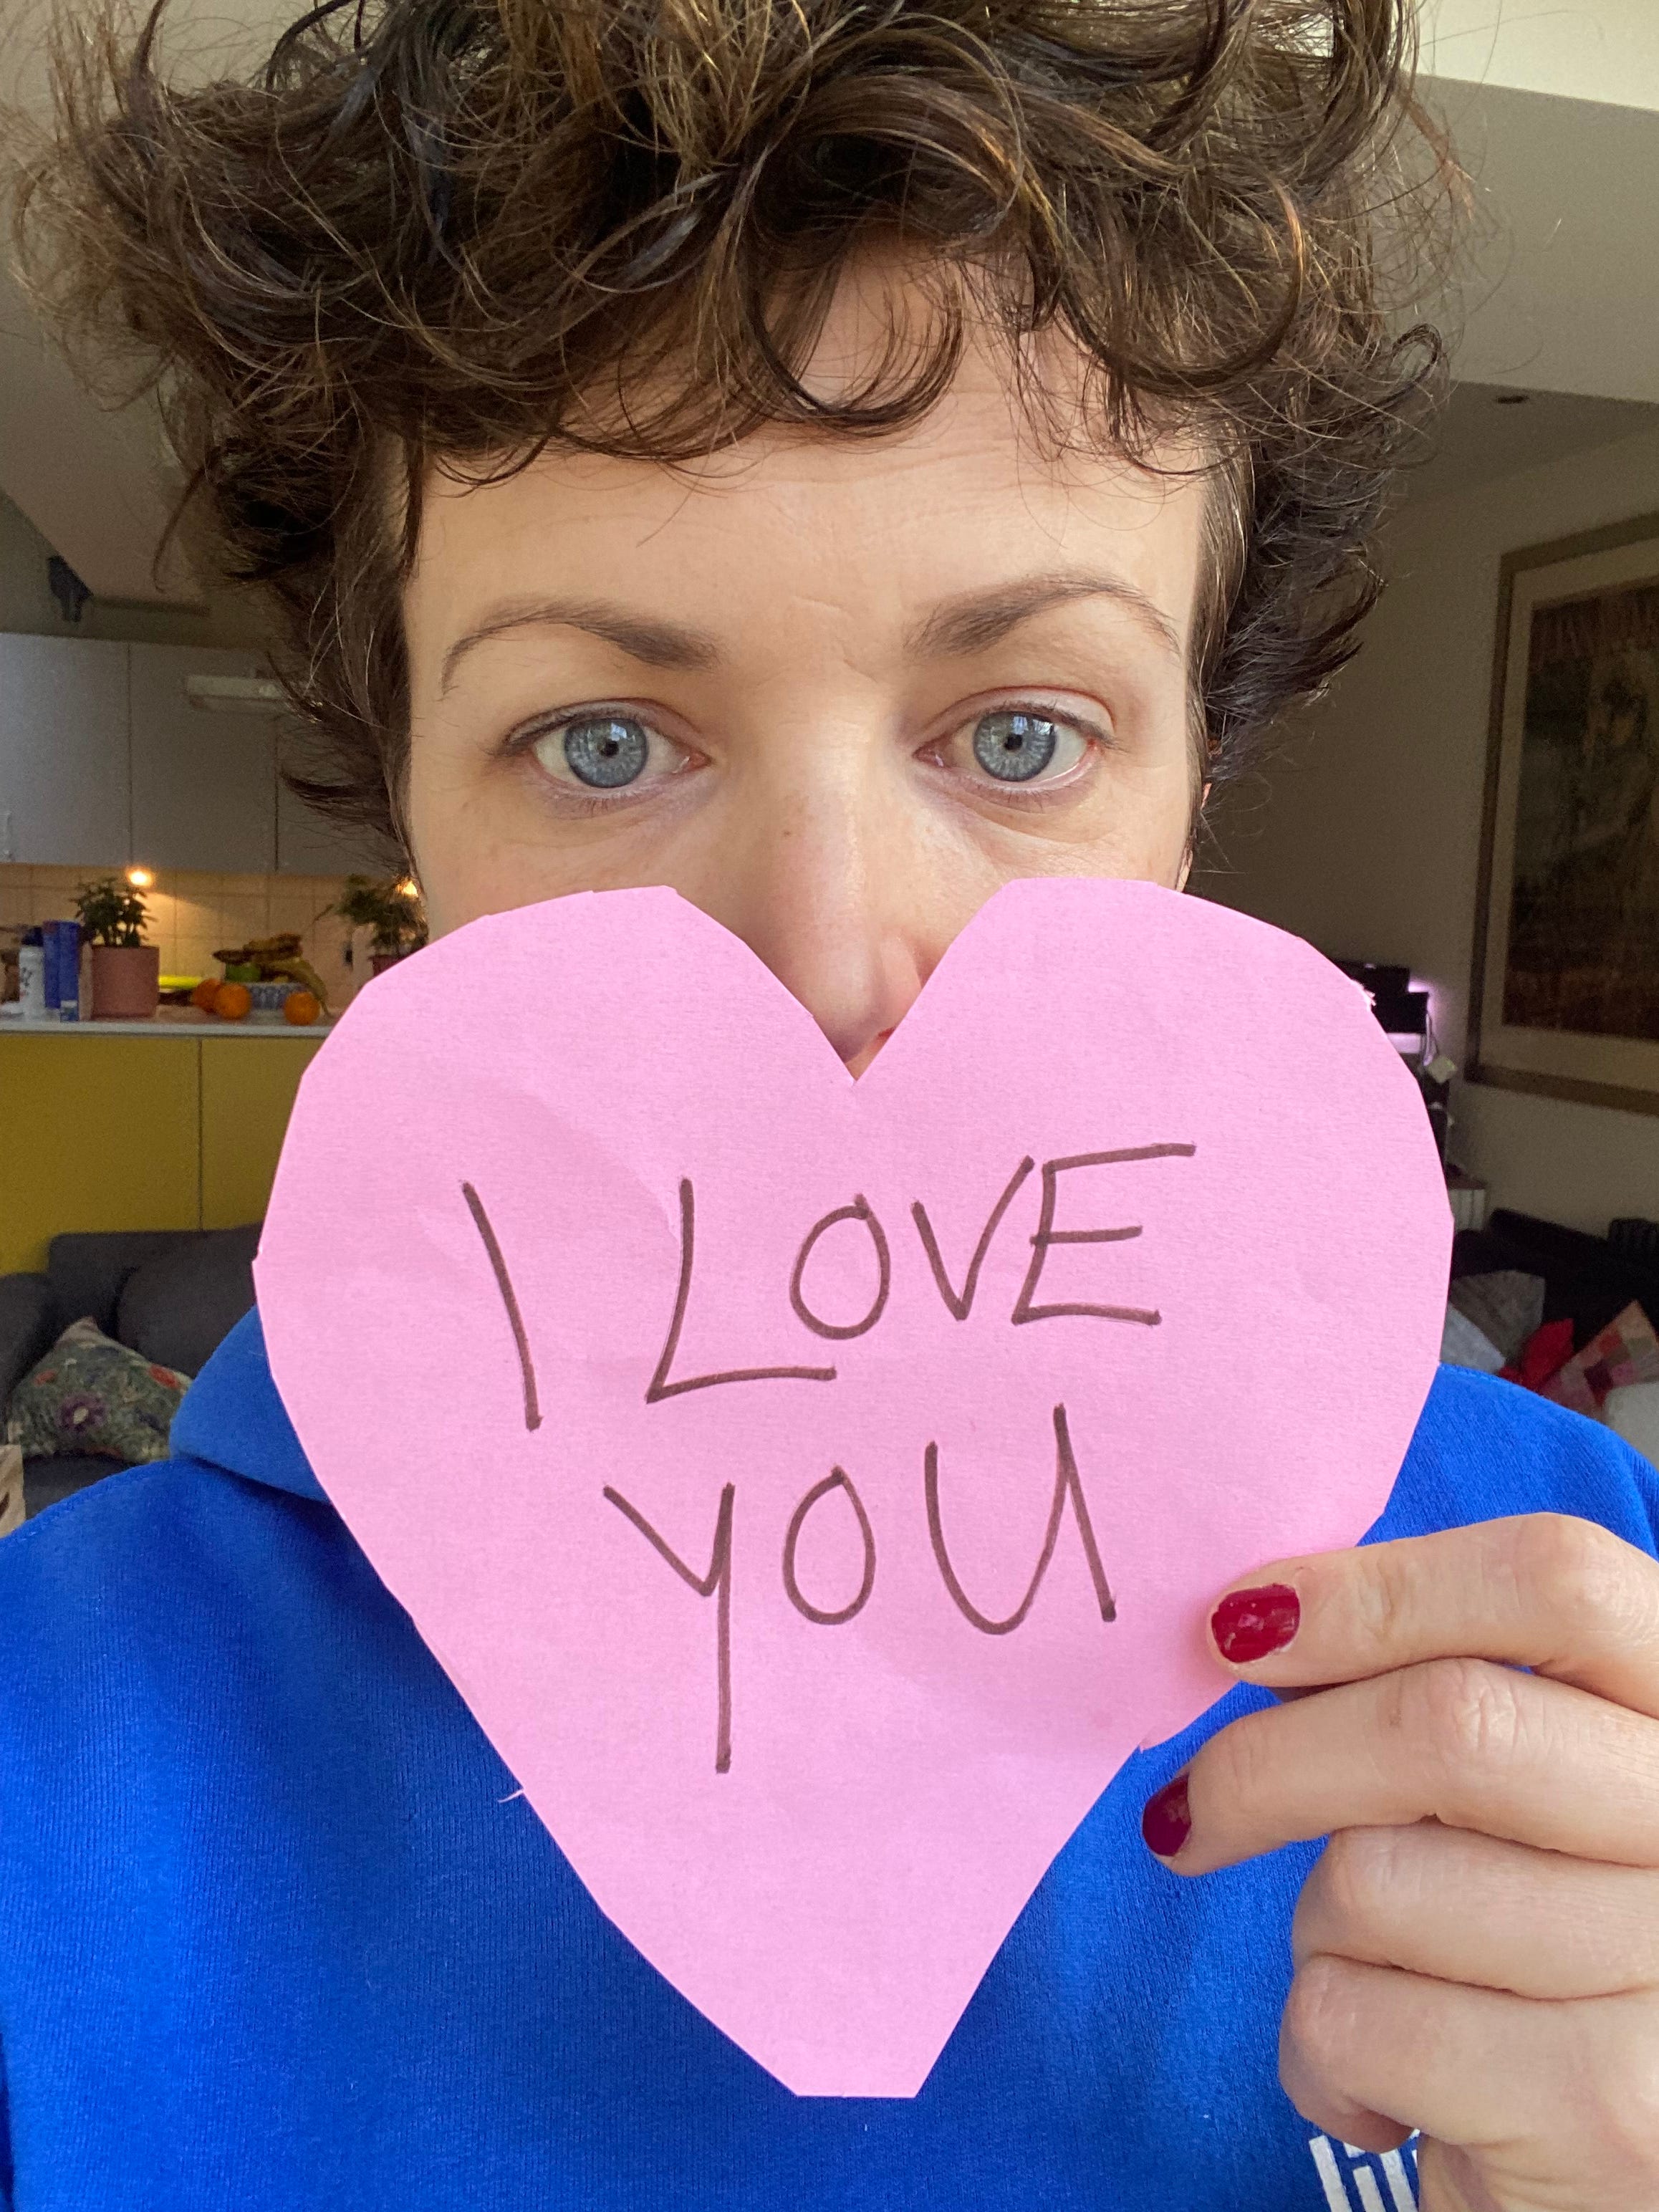 I LOVE
YOU